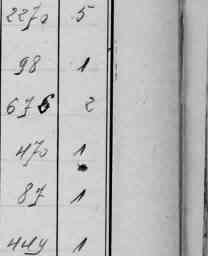 2270 5
98 1
676 2
470 1
87 1
449 1